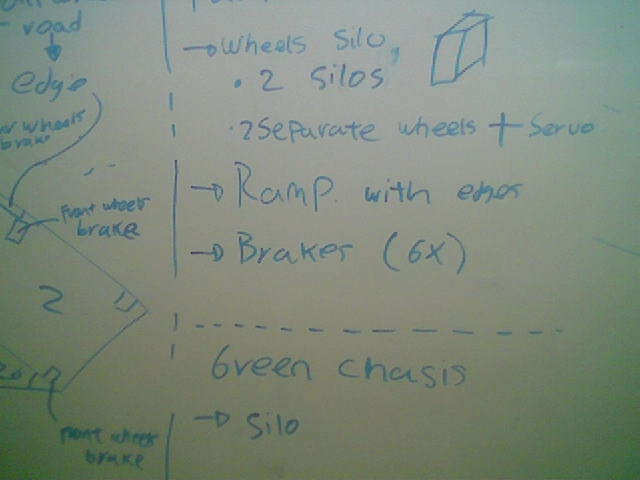 road
edge
wheels
brake
front wheels
brake
2
front wheels
brake
→ Wheels Silo,
• 2 Silos
• 2 Separate wheels + Servo
→ Ramp. with edges
→ Brakes (6X)
Green chasis
→ Silo